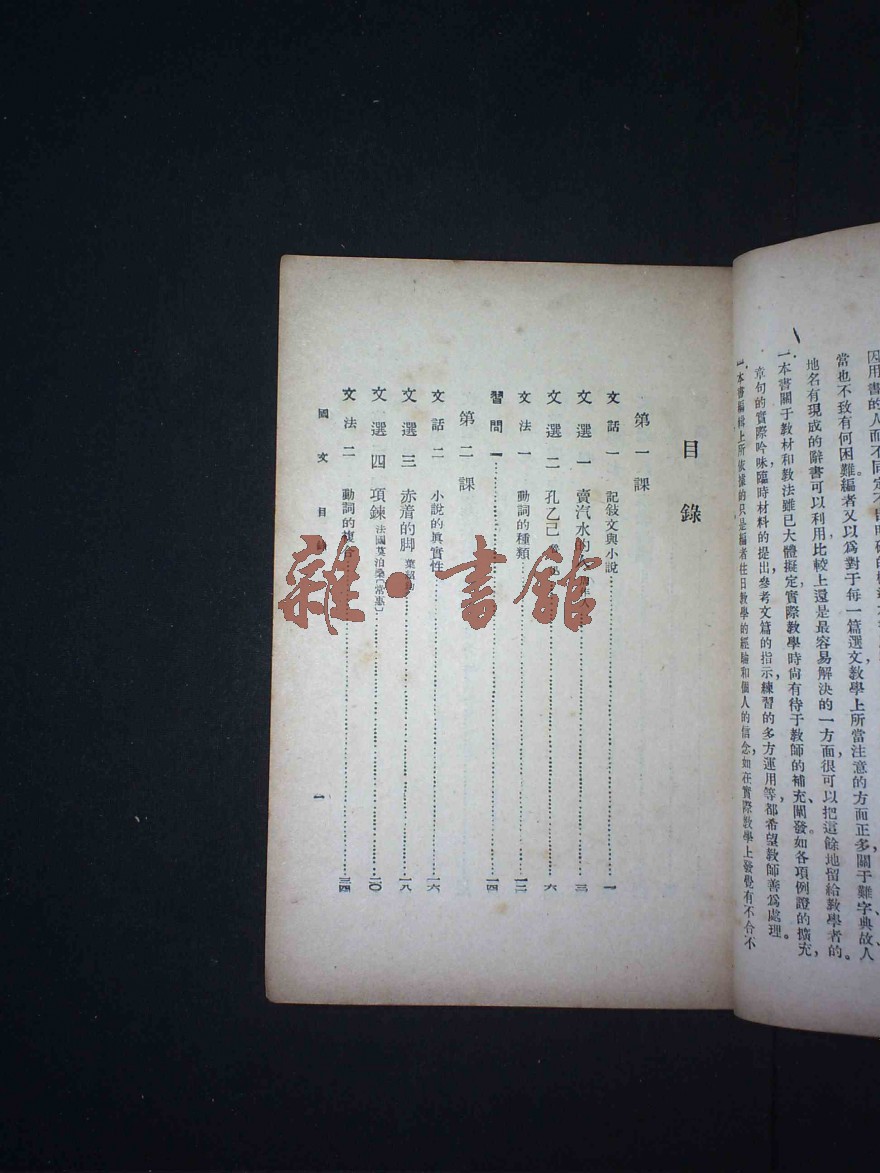 因用書的人而不同定
當也不致有何困難編者又以爲對于每一篇選文教學上所當注意的方面正多關于難字典故人
地名有現成的辭書可以利用比較上還是最容易解決的一方面很可以把這餘地留給教學者的。
一、本書關于教材和教法雖已大體擬定實際教學時尙有待于教師的補充、闡發如各項例證的擴充，
章句的實際吟味，臨時材料的提出，參考文篇的指示，練習的多方運用等，都希望教師善爲處理。
一、本書編輯上所依據的只是編者往日教學的經驗和個人的信念，如在實際教學上發覺有不合不
目錄
第一課
文話一 記敍文與小說 一
文選一 賣汽水的人 三
文選二 孔乙己 六
文法一 動詞的種類 一二
習問一 一四
第二課
文話二 小說的眞實性 一六
文選三 赤着的脚 葉紹鈞 一八
文選四 項鍊 法國莫泊桑〔常惠〕 二〇
文法二 動詞的複合 三四
國文 目錄
一
雜·書館